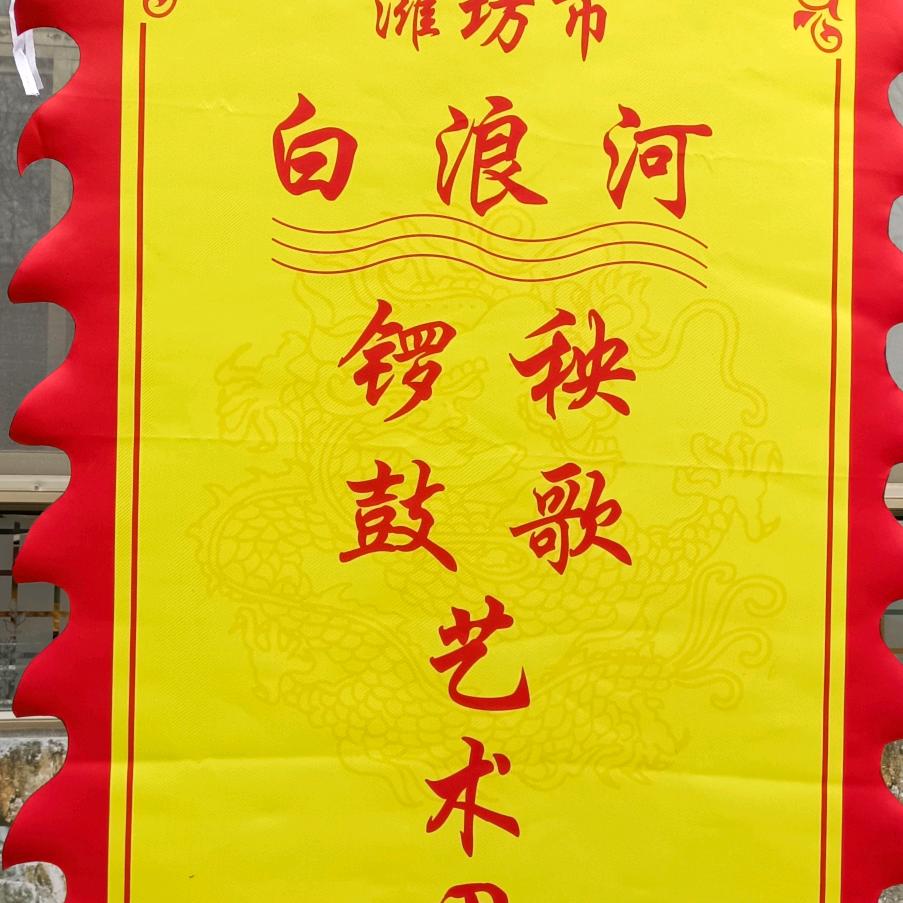 潍坊市
白浪河
锣鼓
秧歌
艺术